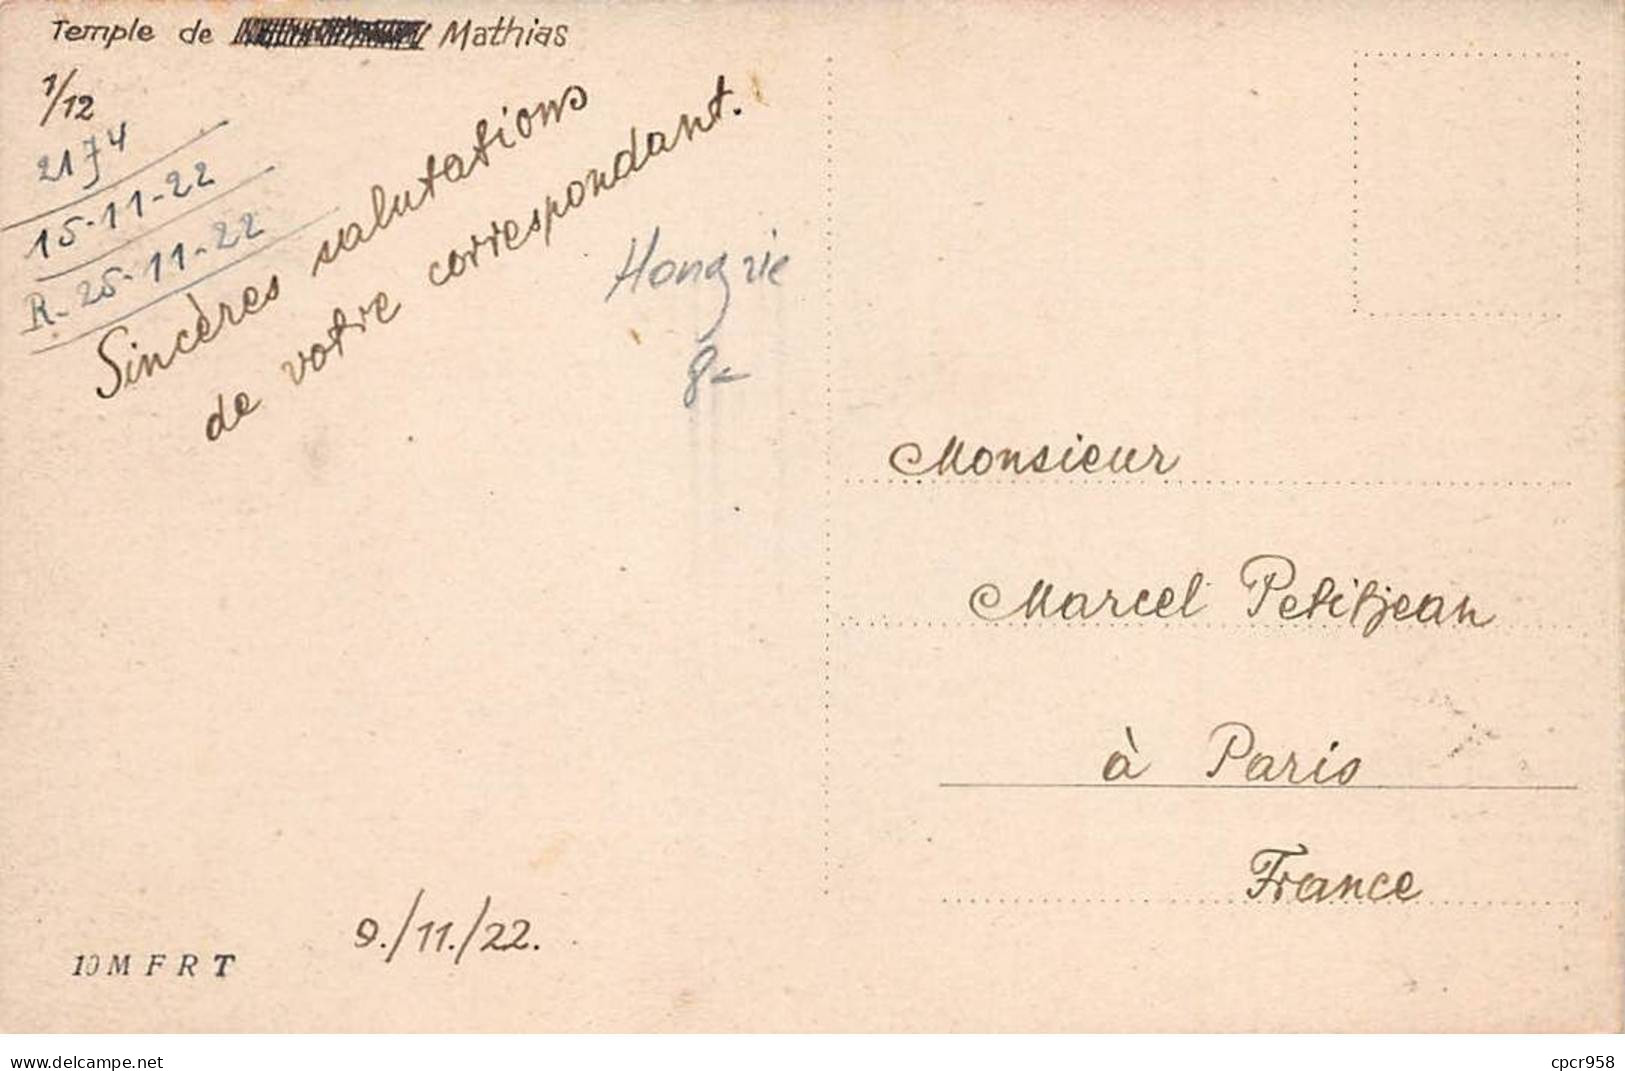 Temple de Mathias
1/12
2174
15-11-22
R. 25-11-22
Sincères salutations
de votre correspondant.
Hongrie
8-
Monsieur
Marcel Petitjean
à Paris
France
9./11./22.
10 M F R T
www.delcampe.net
cpcr958